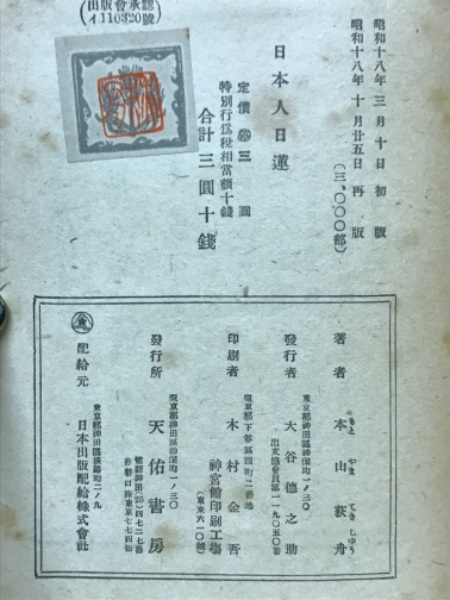 昭和十八年三月十日初版
昭和十八年十月廿五日再版
(三,〇〇〇部)
日本人日蓮
定價 三圓
特別行爲稅相當額十錢
合計三圓十錢
(出版會承認
イ110320號)
著者 本山荻舟
もと やま てき しゅう
東京都神田區神保町一ノ三〇
發行者 大谷德之助
東京都下谷區西町二番地
印刷者 木村金吾
神宮館印刷工場
(東東六一〇)
東京都神田區神保町一ノ三〇
發行所 天佑書房
東京都神田區淡路町二ノ九
配給元 日本出版配給株式會社